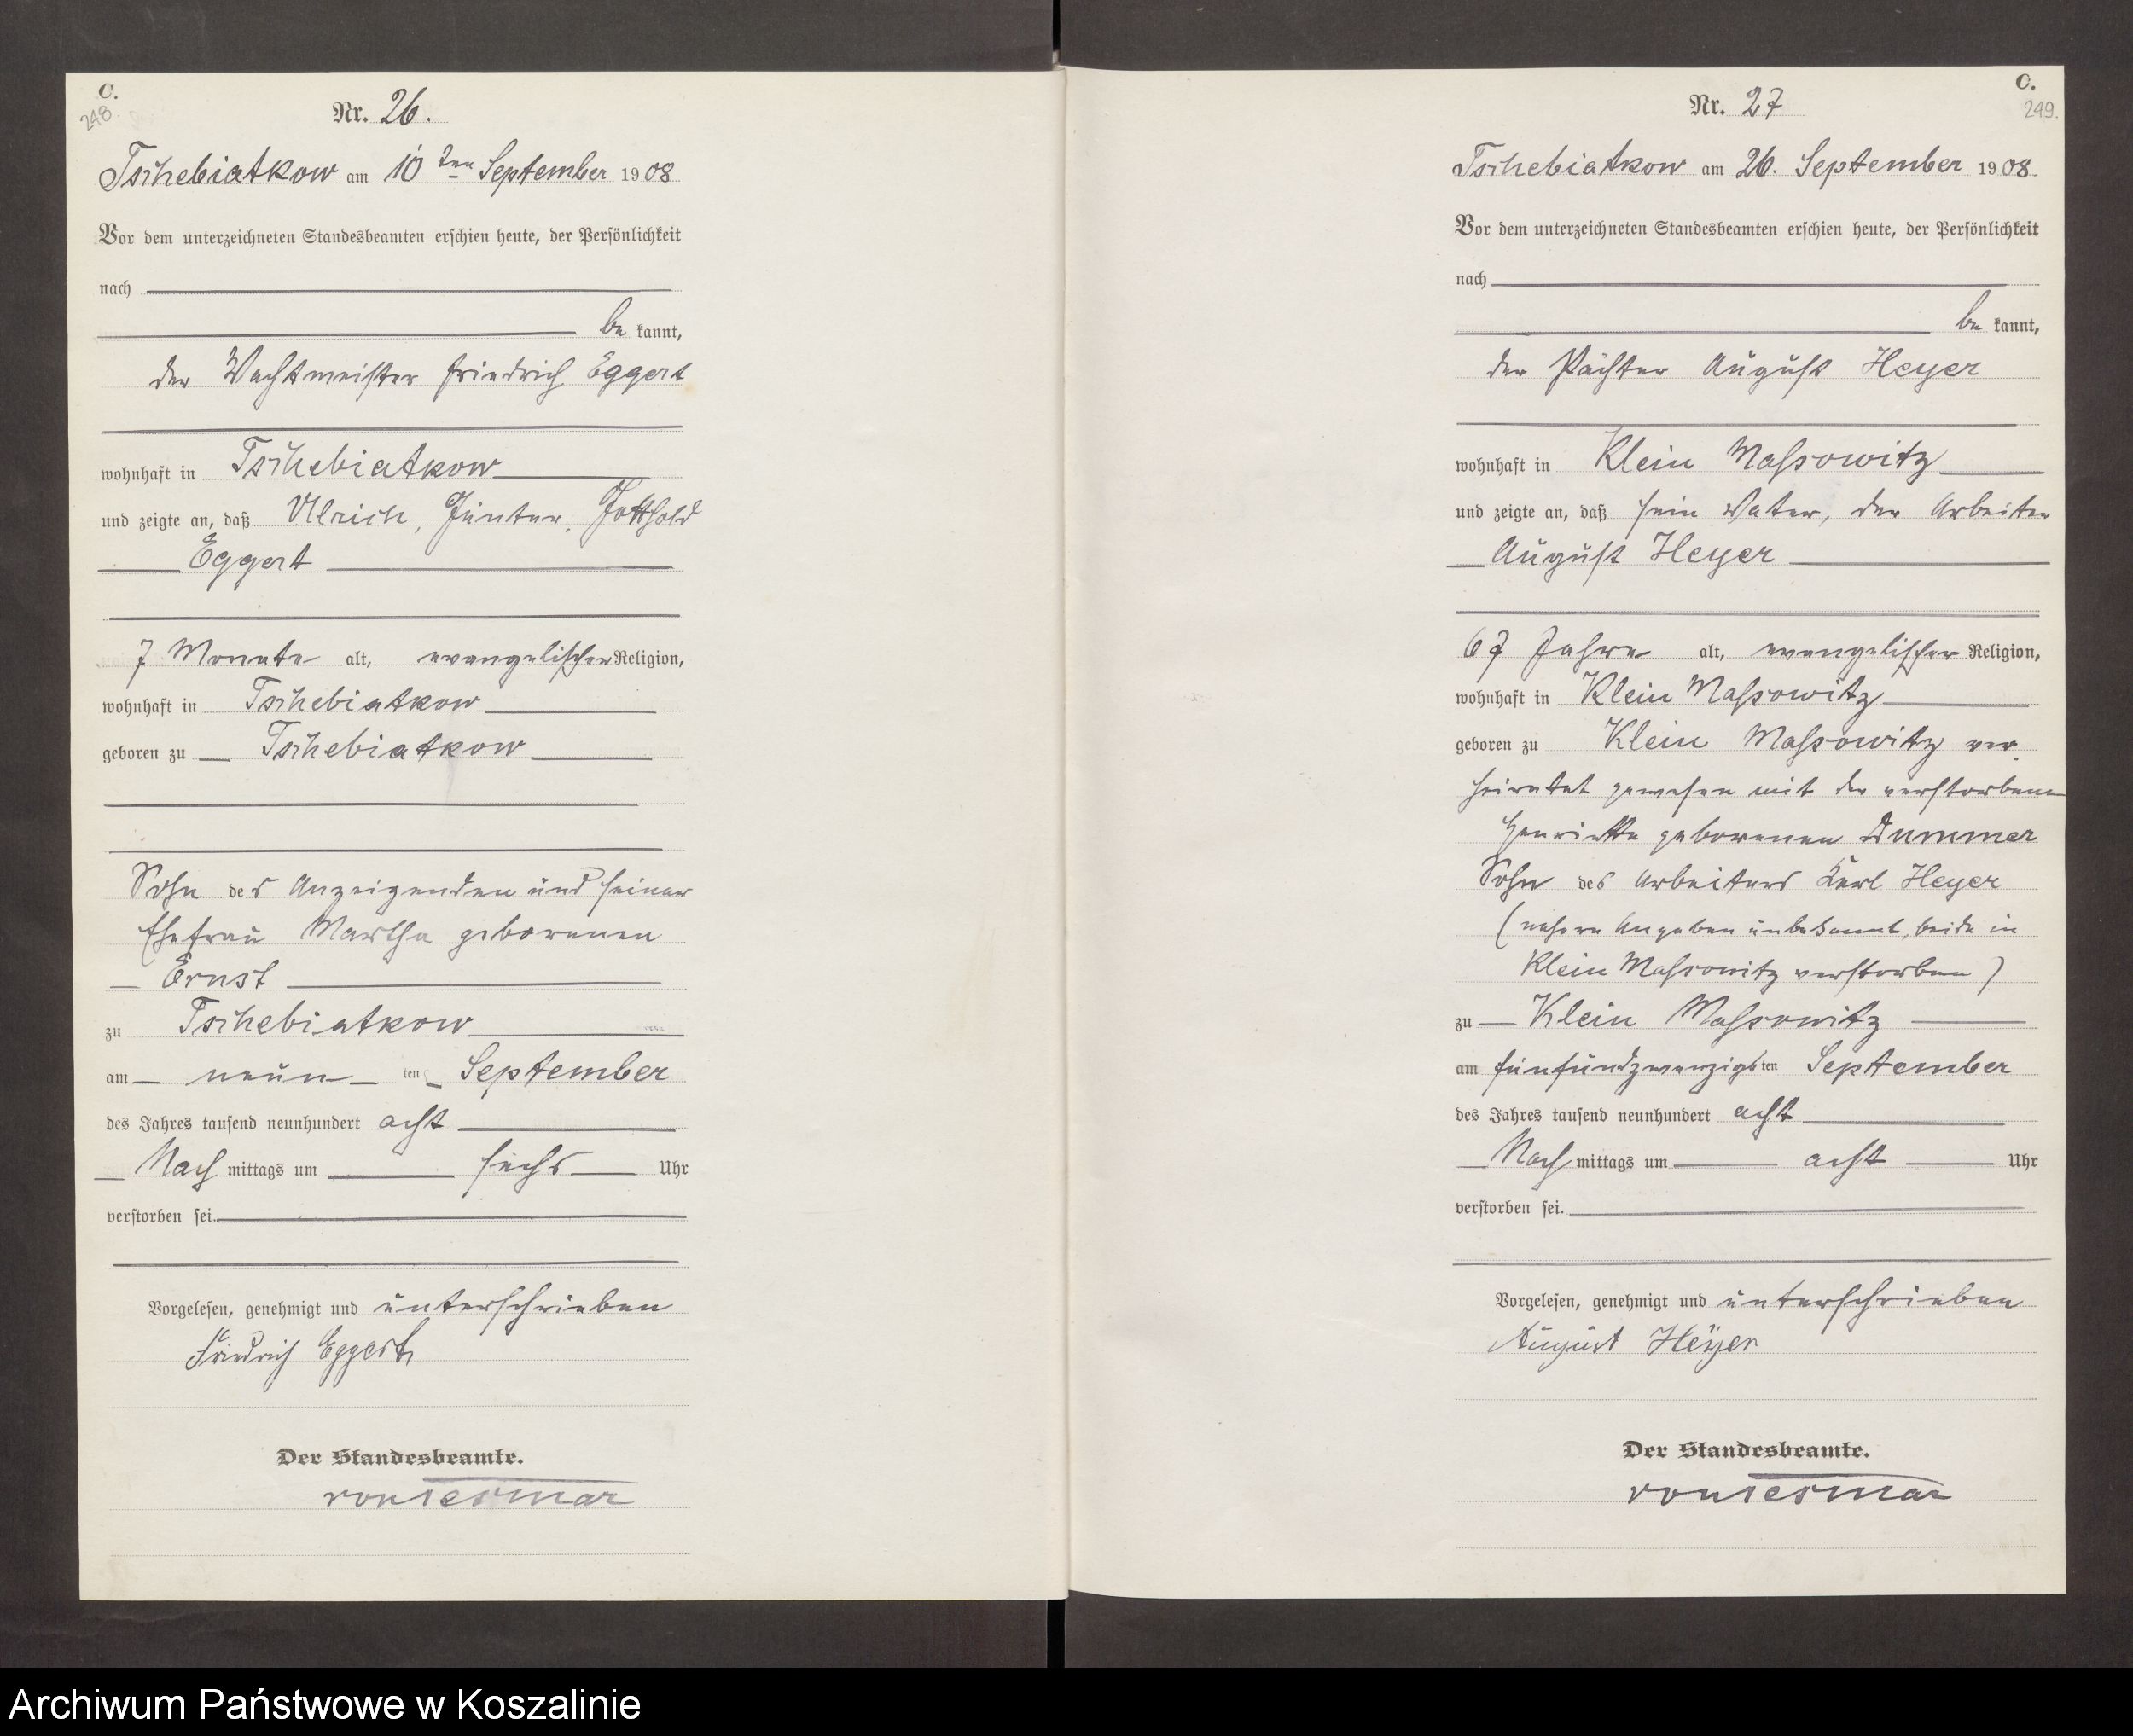 C.
248.
Nr. 26.
Tschebiatkow am 10ten September 1908
Vor dem unterzeichneten Standesbeamten erschien heute, der Persönlichkeit
nach
be kannt,
der Wachtmeister Friedrich Eggert
wohnhaft in Tschebiatkow
und zeigte an, daß Ulrich, Günter, Gotthold
Eggert
7 Monate alt, evangelischer Religion,
wohnhaft in Tschebiatkow
geboren zu Tschebiatkow
Sohn des Anzeigenden und seiner
Ehefrau Martha geborenen
Ernst
zu Tschebiatkow
am neun ten September
des Jahres tausend neunhundert acht
Nach mittags um sechs Uhr
verstorben sei.
Vorgelesen, genehmigt und unterschrieben
Friedrich Eggert
Der Standesbeamte.
von Tesmar
C.
249.
Nr. 27
Tschebiatkow am 26. September 1908.
Vor dem unterzeichneten Standesbeamten erschien heute, der Persönlichkeit
nach
be kannt,
der Pächter August Heyer
wohnhaft in Klein Massowitz
und zeigte an, daß sein Vater, der Arbeiter
August Heyer
67 Jahre alt, evangelischer Religion,
wohnhaft in Klein Massowitz
geboren zu Klein Massowitz ver
heiratet gewesen mit der verstorbenen
Henriette geborenen Dummer
Sohn des Arbeiters Karl Heyer
(nähere Angaben unbekannt, beide in
Klein Massowitz verstorben)
zu Klein Massowitz
am fünfundzwanzigsten September
des Jahres tausend neunhundert acht
Nach mittags um acht Uhr
verstorben sei.
Vorgelesen, genehmigt und unterschrieben
August Heyer
Der Standesbeamte.
von Tesmar
Archiwum Państwowe w Koszalinie